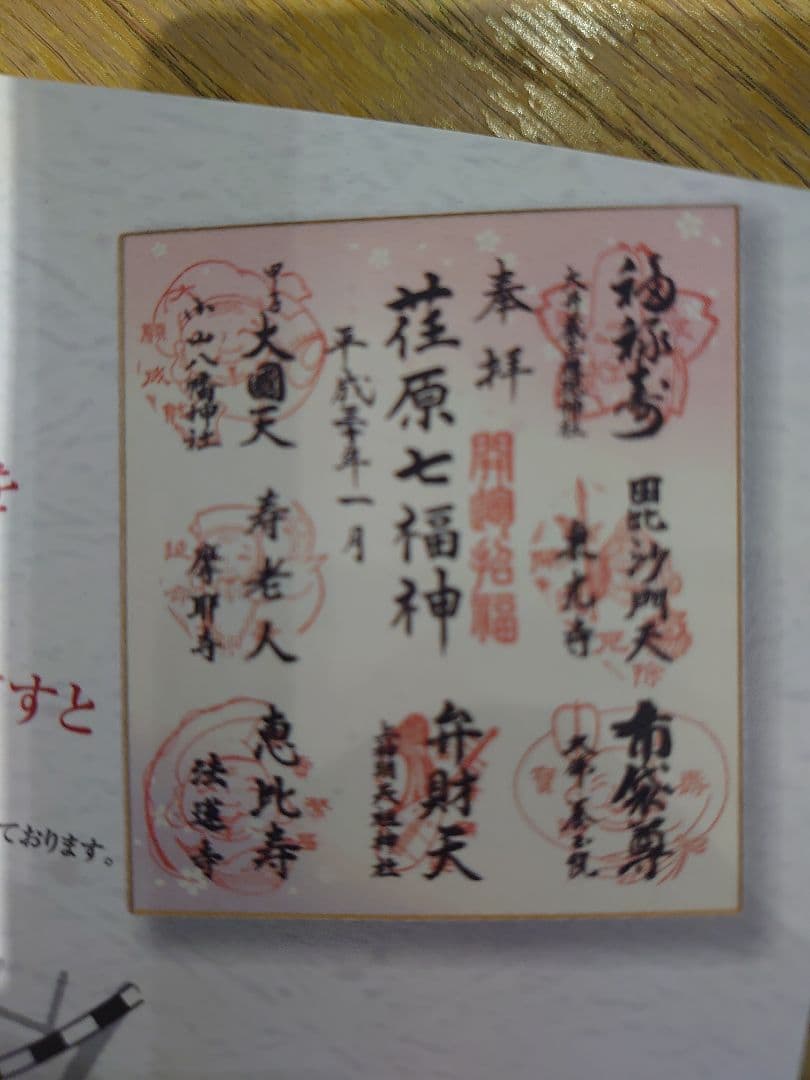 福禄寿
大井蔵王権現神社
毘沙門天
東光寺
布袋尊
大井養玉院
奉拝
開運招福
荏原七福神
平成三十年一月
弁財天
上神明天祖神社
甲子 大國天
小山八幡神社
寿老人
摩耶寺
恵比寿
法蓮寺
すと
ております。